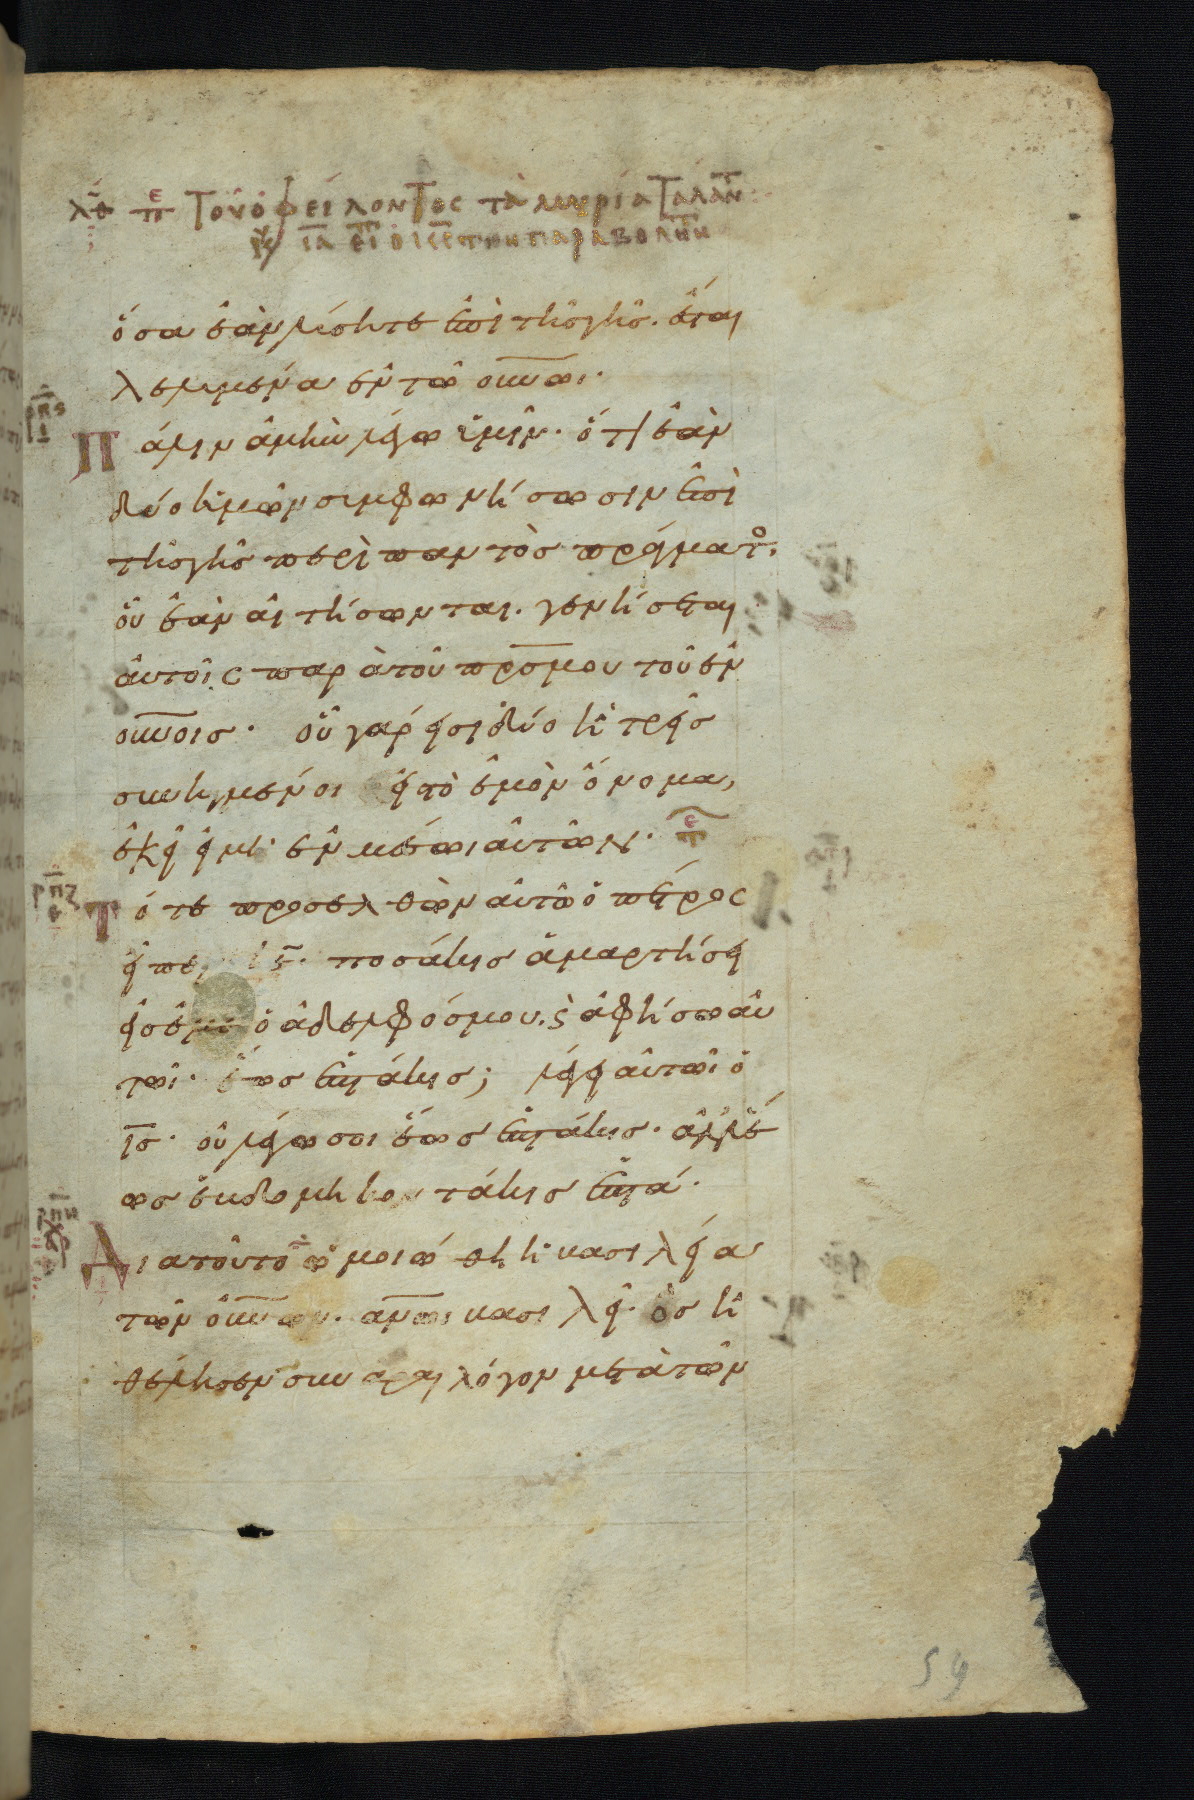 λθ Τοῦ ὀφείλοντος τὰ μυρία Ταλάν
εἶπ ὁ κς τὴν παραβολὴν
ὅσα ἐὰν λύσητε ἐπὶ τῆς γῆς. ἔσται
λελυμένα ἐν τῶ οὐνωι·
Πάλιν ἀμὴν λέγω ὑμῖν· ὅτι ἐὰν
δύο ὑμῶν συμφωνήσωσιν ἐπὶ
τῆς γῆς περὶ παντὸς πράγματο.
οὗ ἐὰν αἰτήσωνται. γενήσεται
αὐτοῖς παρὰ τοῦ πρσμου τοῦ ἐν
οὐνοις· οὗ γάρ εἰσι δύο ἢ τρεῖς
συνηγμένοι εἰς τὸ ἐμὸν ὄνομα,
ἐκεῖ εἰμι ἐν μέσωι αὐτῶν·
Τότε προσελθὼν αὐτῶ ὁ πέτρος
εἶπε· ποσάκις ἁμαρτήσει
εἰς ἐμὲ ὁ ἀδελφόσμου. ϛ ἀφήσω αὐ
τῶι· ἕως ἑπτάκις; λέγει αὐτῶι ὁ
ις· οὐ λέγω σοι ἕως ἑπτάκις· ἀλλ' ἕ
ως ἑβδομηκοντάκις ἑπτά·
Διατοῦτο ὡμοιώθη ἡ βασιλεία
τῶν οὐνων· ανωι βασιλεῖ· ὃς ἠ
θέλησεν συναραι λόγον μετὰ τῶν
59